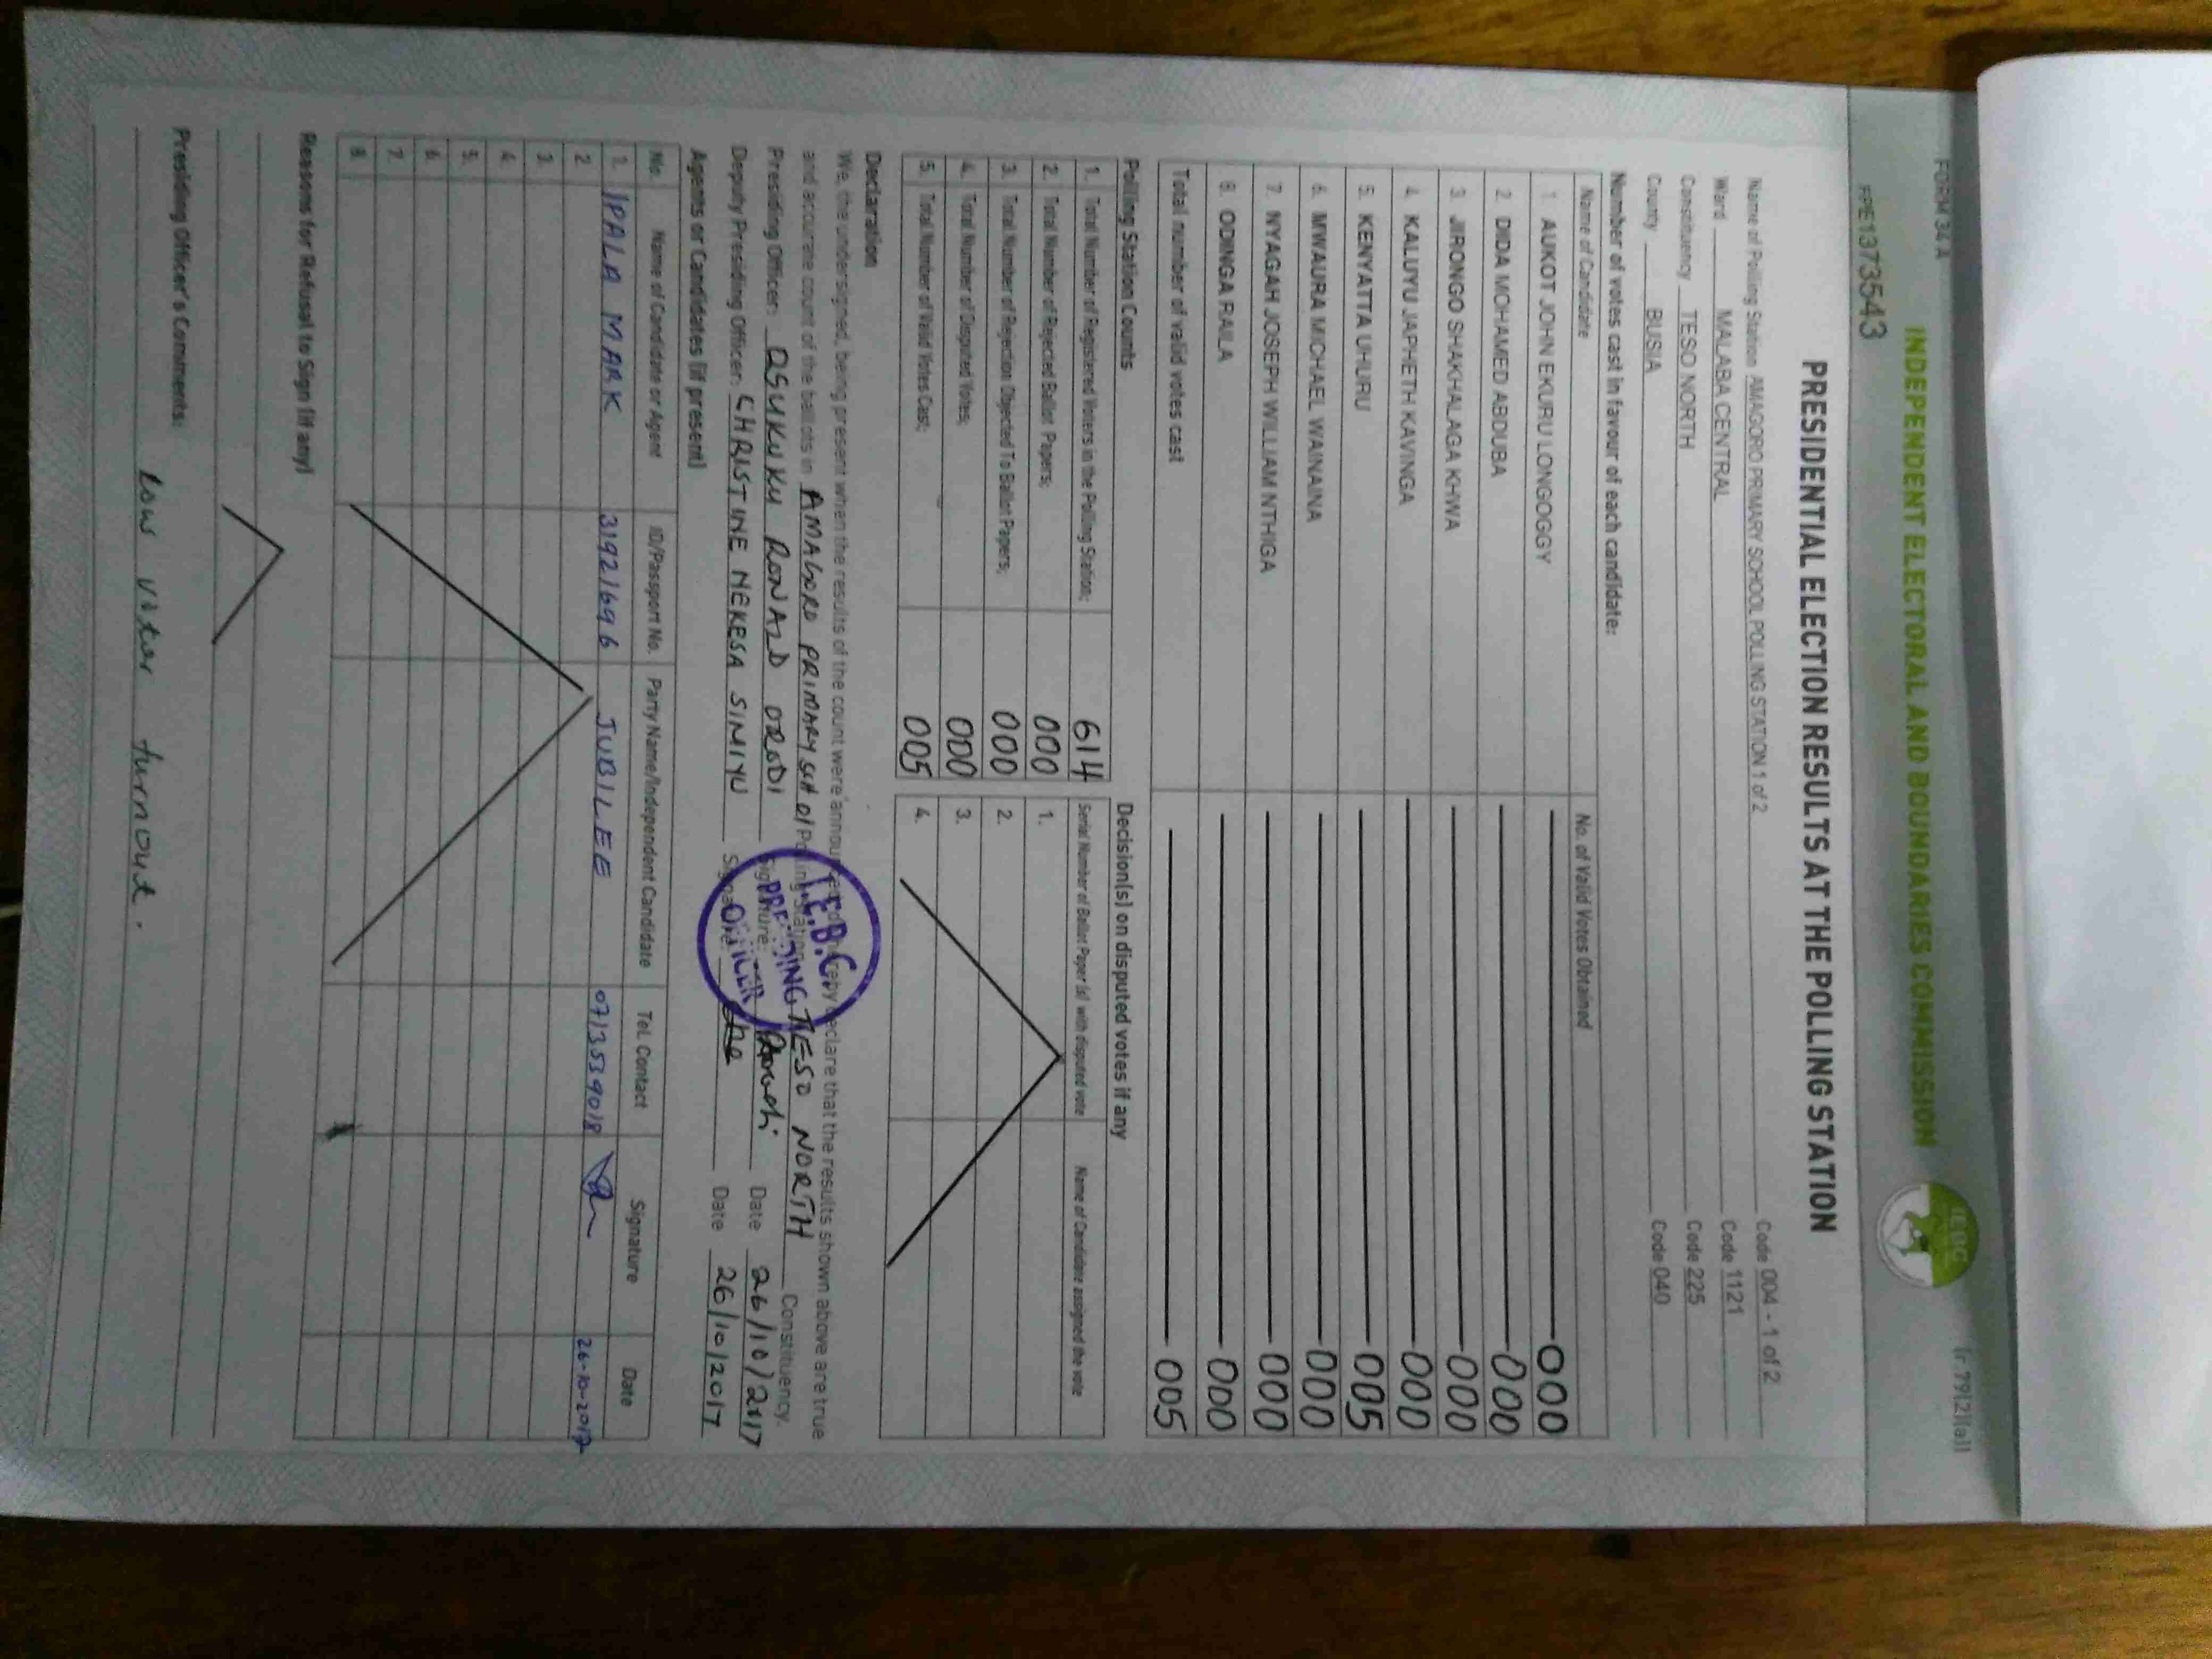 FORM 34A
(r.79(2)(a))
INDEPENDENT ELECTORAL AND BOUNDARIES COMMISSION
IEBC
PRE1373543
PRESIDENTIAL ELECTION RESULTS AT THE POLLING STATION
Name of Polling Station AMAGORO PRIMARY SCHOOL POLLING STATION 1 of 2 Code 004 - 1 of 2
Ward MALABA CENTRAL Code 1121
Constituency TESO NORTH Code 225
County BUSIA Code 040
Number of votes cast in favour of each candidate:
Name of Candidate No. of Valid Votes Obtained
1. AUKOT JOHN EKURU LONGOGGY 000
2. DIDA MOHAMED ABDUBA 000
3. JIRONGO SHAKHALAGA KHWA 000
4. KALUYU JAPHETH KAVINGA 000
5. KENYATTA UHURU 005
6. MWAURA MICHAEL WAINAINA 000
7. NYAGAH JOSEPH WILLIAM NTHIGA 000
8. ODINGA RAILA 000
Total number of valid votes cast 005
Polling Station Counts
1. Total Number of Registered Voters in the Polling Station; 614
2. Total Number of Rejected Ballot Papers; 000
3. Total Number of Rejection Objected To Ballot Papers; 000
4. Total Number of Disputed Votes; 000
5. Total Number of Valid Votes Cast; 005
Decision(s) on disputed votes if any
Serial Number of Ballot Paper (s) with disputed vote Name of Candidate assigned the vote
1.
2.
3.
4.
Declaration
We, the undersigned, being present when the results of the count were announced declare that the results shown above are true
and accurate count of the ballots in AMAGORO PRIMARY SCH 01 Polling Station TESO NORTH Constituency.
Presiding Officer: OSUKUKU RONALD ORODI Signature: Date 26/10/2017
Deputy Presiding Officer: CHRISTINE NEKESA SIMIYU Signature Date 26/10/2017
I.E.B.C
PRESIDING
OFFICER
Agents or Candidates (if present)
No. Name of Candidate or Agent ID/Passport No. Party Name/Independent Candidate Tel. Contact Signature Date
1. IPALA MARK 31921696 JUBILEE 0713539018 26-10-2017
2.
3.
4.
5.
6.
7.
8.
Reasons for Refusal to Sign (if any)
Presiding Officer's Comments:
Low voter turnout.